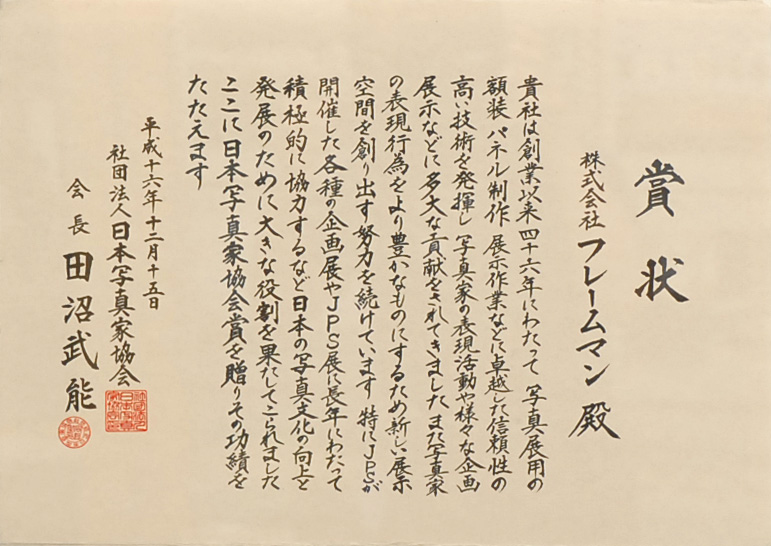 賞状
株式会社フレームマン 殿
貴社は創業以来四十六年にわたって 写真展用の
額装 パネル制作 展示作業などに卓越した信頼性の
高い技術を発揮し 写真家の表現活動や様々な企画
展示などに多大な貢献をされてきました また写真家
の表現行為をより豊かなものにするため新しい展示
空間を創り出す努力を続けています 特にJPSが
開催した各種の企画展やJPS展に長年にわたって
積極的に協力するなど日本の写真文化の向上と
発展のために大きな役割を果たしてこられました
ここに日本写真家協会賞を贈りその功績を
たたえます
平成十六年十二月十五日
社団法人日本写真家協会
会長 田沼武能